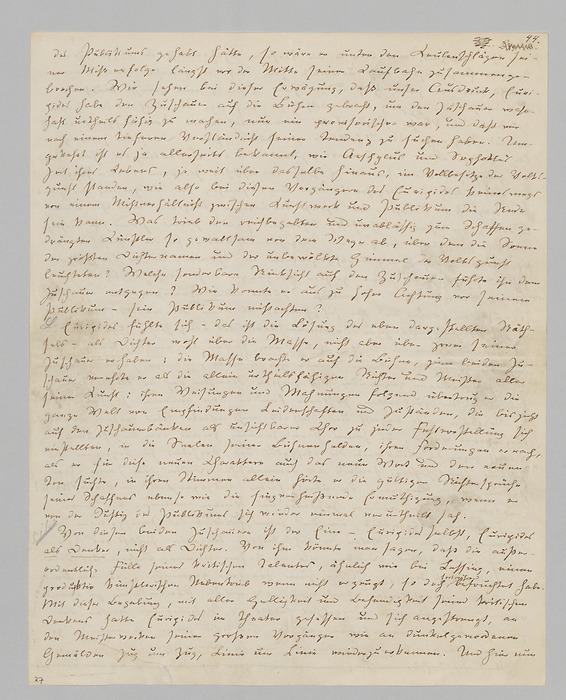 des Publikums gehabt hätte, so wäre er unter den Keulenschlägen sei-
ner Mißerfolge längst vor der Mitte seiner Laufbahn zusammenge-
brochen. Wir sehen bei dieser Erwägung, daß unser Ausdruck, Euri-
pides habe den Zuschauer auf die Bühne gebracht, um den Zuschauer wahr-
haft urtheilsfähig zu machen, nur ein provisorischer war, und daß wir
nach einem tieferen Verständniß seiner Tendenz zu suchen haben. Um-
gekehrt ist es ja allerseits bekannt, wie Aeschylus und Sophokles
Zeit ihres Lebens, ja weit über dasselbe hinaus, im Vollbesitze der Volks-
gunst standen, wie also bei diesen Vorgängern des Euripides keineswegs
von einem Mißverhältniß zwischen Kunstwerk und Publikum die Rede
sein kann. Was trieb den reichbegabten und unablässig zum Schaffen ge-
drängten Künstler so gewaltsam von dem Wege ab, über dem die Sonne
der größten Dichternamen und der unbewölkte Himmel der Volksgunst
leuchteten? Welche sonderbare Rücksicht auf den Zuschauer führte ihn dem
Zuschauer entgegen? Wie konnte er aus zu hoher Achtung vor seinem
Publikum – sein Publikum mißachten?
Euripides fühlte sich – das ist die Lösung des eben dargestellten Räth-
sels – als Dichter wohl über die Masse, nicht aber über zwei seiner
Zuschauer erhaben: die Masse brachte er auf die Bühne, jene beiden Zu-
schauer verehrte er als die allein urtheilsfähigen Richter und Meister aller
seiner Kunst: ihren Weisungen und Mahnungen folgend übertrug er die
ganze Welt von Empfindungen Leidenschaften und Zuständen, die bis jetzt
auf den Zuschauerbänken als unsichtbarer Chor zu jeder Festvorstellung sich
einstellten, in die Seelen seiner Bühnenhelden, ihren Forderungen er nach,
als er für diese neuen Charaktere auch das neue Wort und den neuen
Ton suchte, in ihren Stimmen allein hörte er die gültigen Richtersprüche
seines Schaffens ebenso wie die siegverheißende Ermuthigung, wenn er
von der Justiz des Publikums sich wieder einmal verurtheilt sah.
Von diesen beiden Zuschauern ist der Eine – Euripides selbst, Euripides
als Denker, nicht als Dichter. Von ihm könnte man sagen, daß die außer-
ordentliche Fülle seines kritischen Talentes, ähnlich wie bei Lessing, einen
produktiv künstlerischen Nebentrieb wenn nicht erzeugt, so doch befruchtet habe.
Mit dieser Begabung, mit aller Helligkeit und Behendigkeit seines kritischen
Denkens hatte Euripides im Theater gesessen und sich angestrengt, an
den Meisterwerken seiner großen Vorgänger wie an dunkelgewordenen
Gemälden Zug um Zug, Linie um Linie wiederzuerkennen. Und hier nun
37